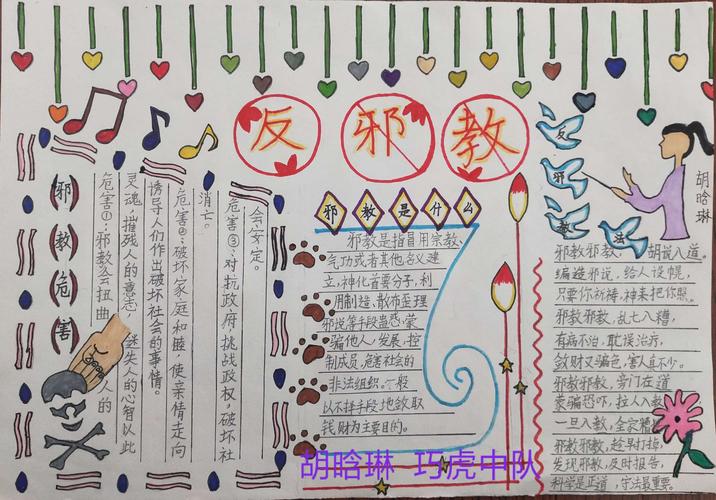 反邪教
胡晗琳
反
邪
教
法
邪教危害
危害①:邪教会扭曲人的
灵魂,摧残人的意志,迷失人的心智以此
诱导人们作出破坏社会的事情。
危害②:破坏家庭和睦,使亲情走向
消亡。
危害③:对抗政府,挑战政权,破坏社
会安定。
邪教是什么
邪教是指冒用宗教、
气功或者其他名义建
立,神化首要分子,利
用制造、散布歪理
邪说等手段蛊惑、蒙
骗他人,发展、控
制成员,危害社会的
非法组织。一般
以不择手段地敛取
钱财为主要目的。
邪教邪教,胡说八道。
编造邪说,给人误
只要你祈祷,神来把你照。
邪教邪教,乱七八糟,
有病不治,耽误治疗,
敛财又骗色,害人真不少。
邪教邪教,旁门左道
蒙骗恐吓,拉人入教
一旦入教,全家
邪教邪教,趁早打掉,
发现邪教,及时报告,
科学是正道,守法最重要。
胡晗琳 巧虎中队